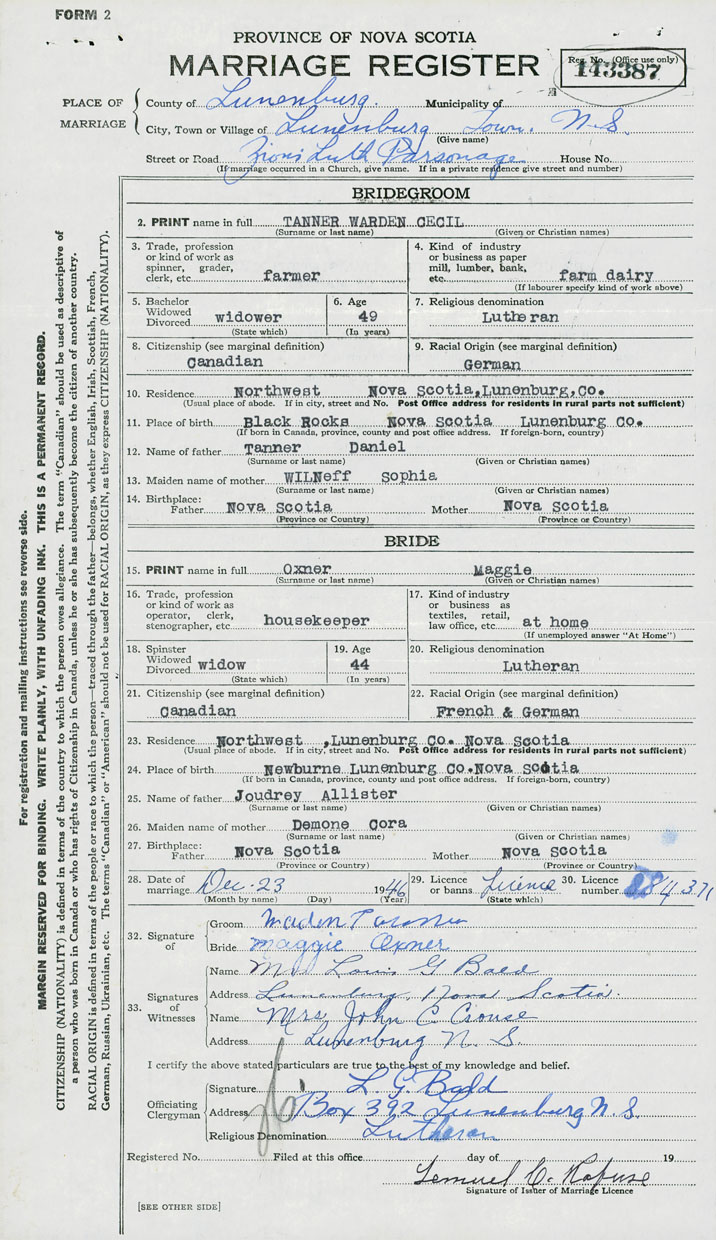 FORM 2
PROVINCE OF NOVA SCOTIA
MARRIAGE REGISTER
Reg. No. (Office use only)
143387
PLACE OF MARRIAGE
County of Lunenburg. Municipality of
City, Town or Village of Lunenburg Town. N.S.
(Give name)
Street or Road Zion Luth Parsonage House No.
(If marriage occurred in a Church, give name. If in a private residence give street and number)
BRIDEGROOM
2. PRINT name in full TANNER WARDEN CECIL
(Surname or last name) (Given or Christian names)
3. Trade, profession or kind of work as spinner, grader, clerk, etc. farmer
4. Kind of industry or business as paper mill, lumber, bank, etc. farm dairy
(If labourer specify kind of work above)
5. Bachelor Widowed Divorced widower
(State which)
6. Age 49
(In years)
7. Religious denomination
Lutheran
8. Citizenship (see marginal definition)
Canadian
9. Racial Origin (see marginal definition)
German
10. Residence Northwest Nova Scotia, Lunenburg, Co.
(Usual place of abode. If in city, street and No. Post Office address for residents in rural parts not sufficient)
11. Place of birth Black Rocks Nova Scotia Lunenburg Co.
(If born in Canada, province, county and post office address. If foreign-born, country)
12. Name of father Tanner Daniel
(Surname or last name) (Given or Christian names)
13. Maiden name of mother WILNeff Sophia
(Surname or last name) (Given or Christian names)
14. Birthplace:
Father Nova Scotia Mother Nova Scotia
(Province or Country) (Province or Country)
BRIDE
15. PRINT name in full Oxner Maggie
(Surname or last name) (Given or Christian names)
16. Trade, profession or kind of work as operator, clerk, stenographer, etc. housekeeper
17. Kind of industry or business as textiles, retail, law office, etc. at home
(If unemployed answer "At Home")
18. Spinster Widowed Divorced widow
(State which)
19. Age 44
(In years)
20. Religious denomination
Lutheran
21. Citizenship (see marginal definition)
Canadian
22. Racial Origin (see marginal definition)
French & German
23. Residence Northwest ,Lunenburg Co. Nova Scotia
(Usual place of abode. If in city, street and No. Post Office address for residents in rural parts not sufficient)
24. Place of birth Newburne Lunenburg Co. Nova Scotia
(If born in Canada, province, county and post office address. If foreign-born, country)
25. Name of father Joudrey Allister
(Surname or last name) (Given or Christian names)
26. Maiden name of mother Demone Cora
(Surname or last name) (Given or Christian names)
27. Birthplace:
Father Nova Scotia Mother Nova Scotia
(Province or Country) (Province or Country)
28. Date of marriage Dec. 23 1946
(Month by name) (Day) (Year)
29. Licence or banns Licence
(State which)
30. Licence number
32. Signature of
Groom
Bride Maggie Oxner
33. Signatures of Witnesses
Name Louis G Bald
Address Lunenburg, Nova Scotia.
Name Mrs John C Crouse
Address Lunenburg N. S.
I certify the above stated particulars are true to the best of my knowledge and belief.
Officiating Clergyman
Signature L. G. Bald
Address Box 392 Lunenburg N. S.
Religious Denomination Lutheran
Registered No. Filed at this office day of 19
Lemuel C. Rafuse
Signature of Issuer of Marriage Licence
[SEE OTHER SIDE]
For registration and mailing instructions see reverse side.
MARGIN RESERVED FOR BINDING. WRITE PLAINLY, WITH UNFADING INK. THIS IS A PERMANENT RECORD.
CITIZENSHIP (NATIONALITY) is defined in terms of the country to which the person owes allegiance. The term "Canadian" should be used as descriptive of
a person who was born in Canada or who has rights of Citizenship in Canada, unless he or she has subsequently become the citizen of another country.
RACIAL ORIGIN is defined in terms of the people or race to which the person—traced through the father—belongs, whether English, Irish, Scottish, French,
German, Russian, Ukrainian, etc. The terms "Canadian" or "American" should not be used for RACIAL ORIGIN, as they express CITIZENSHIP (NATIONALITY).